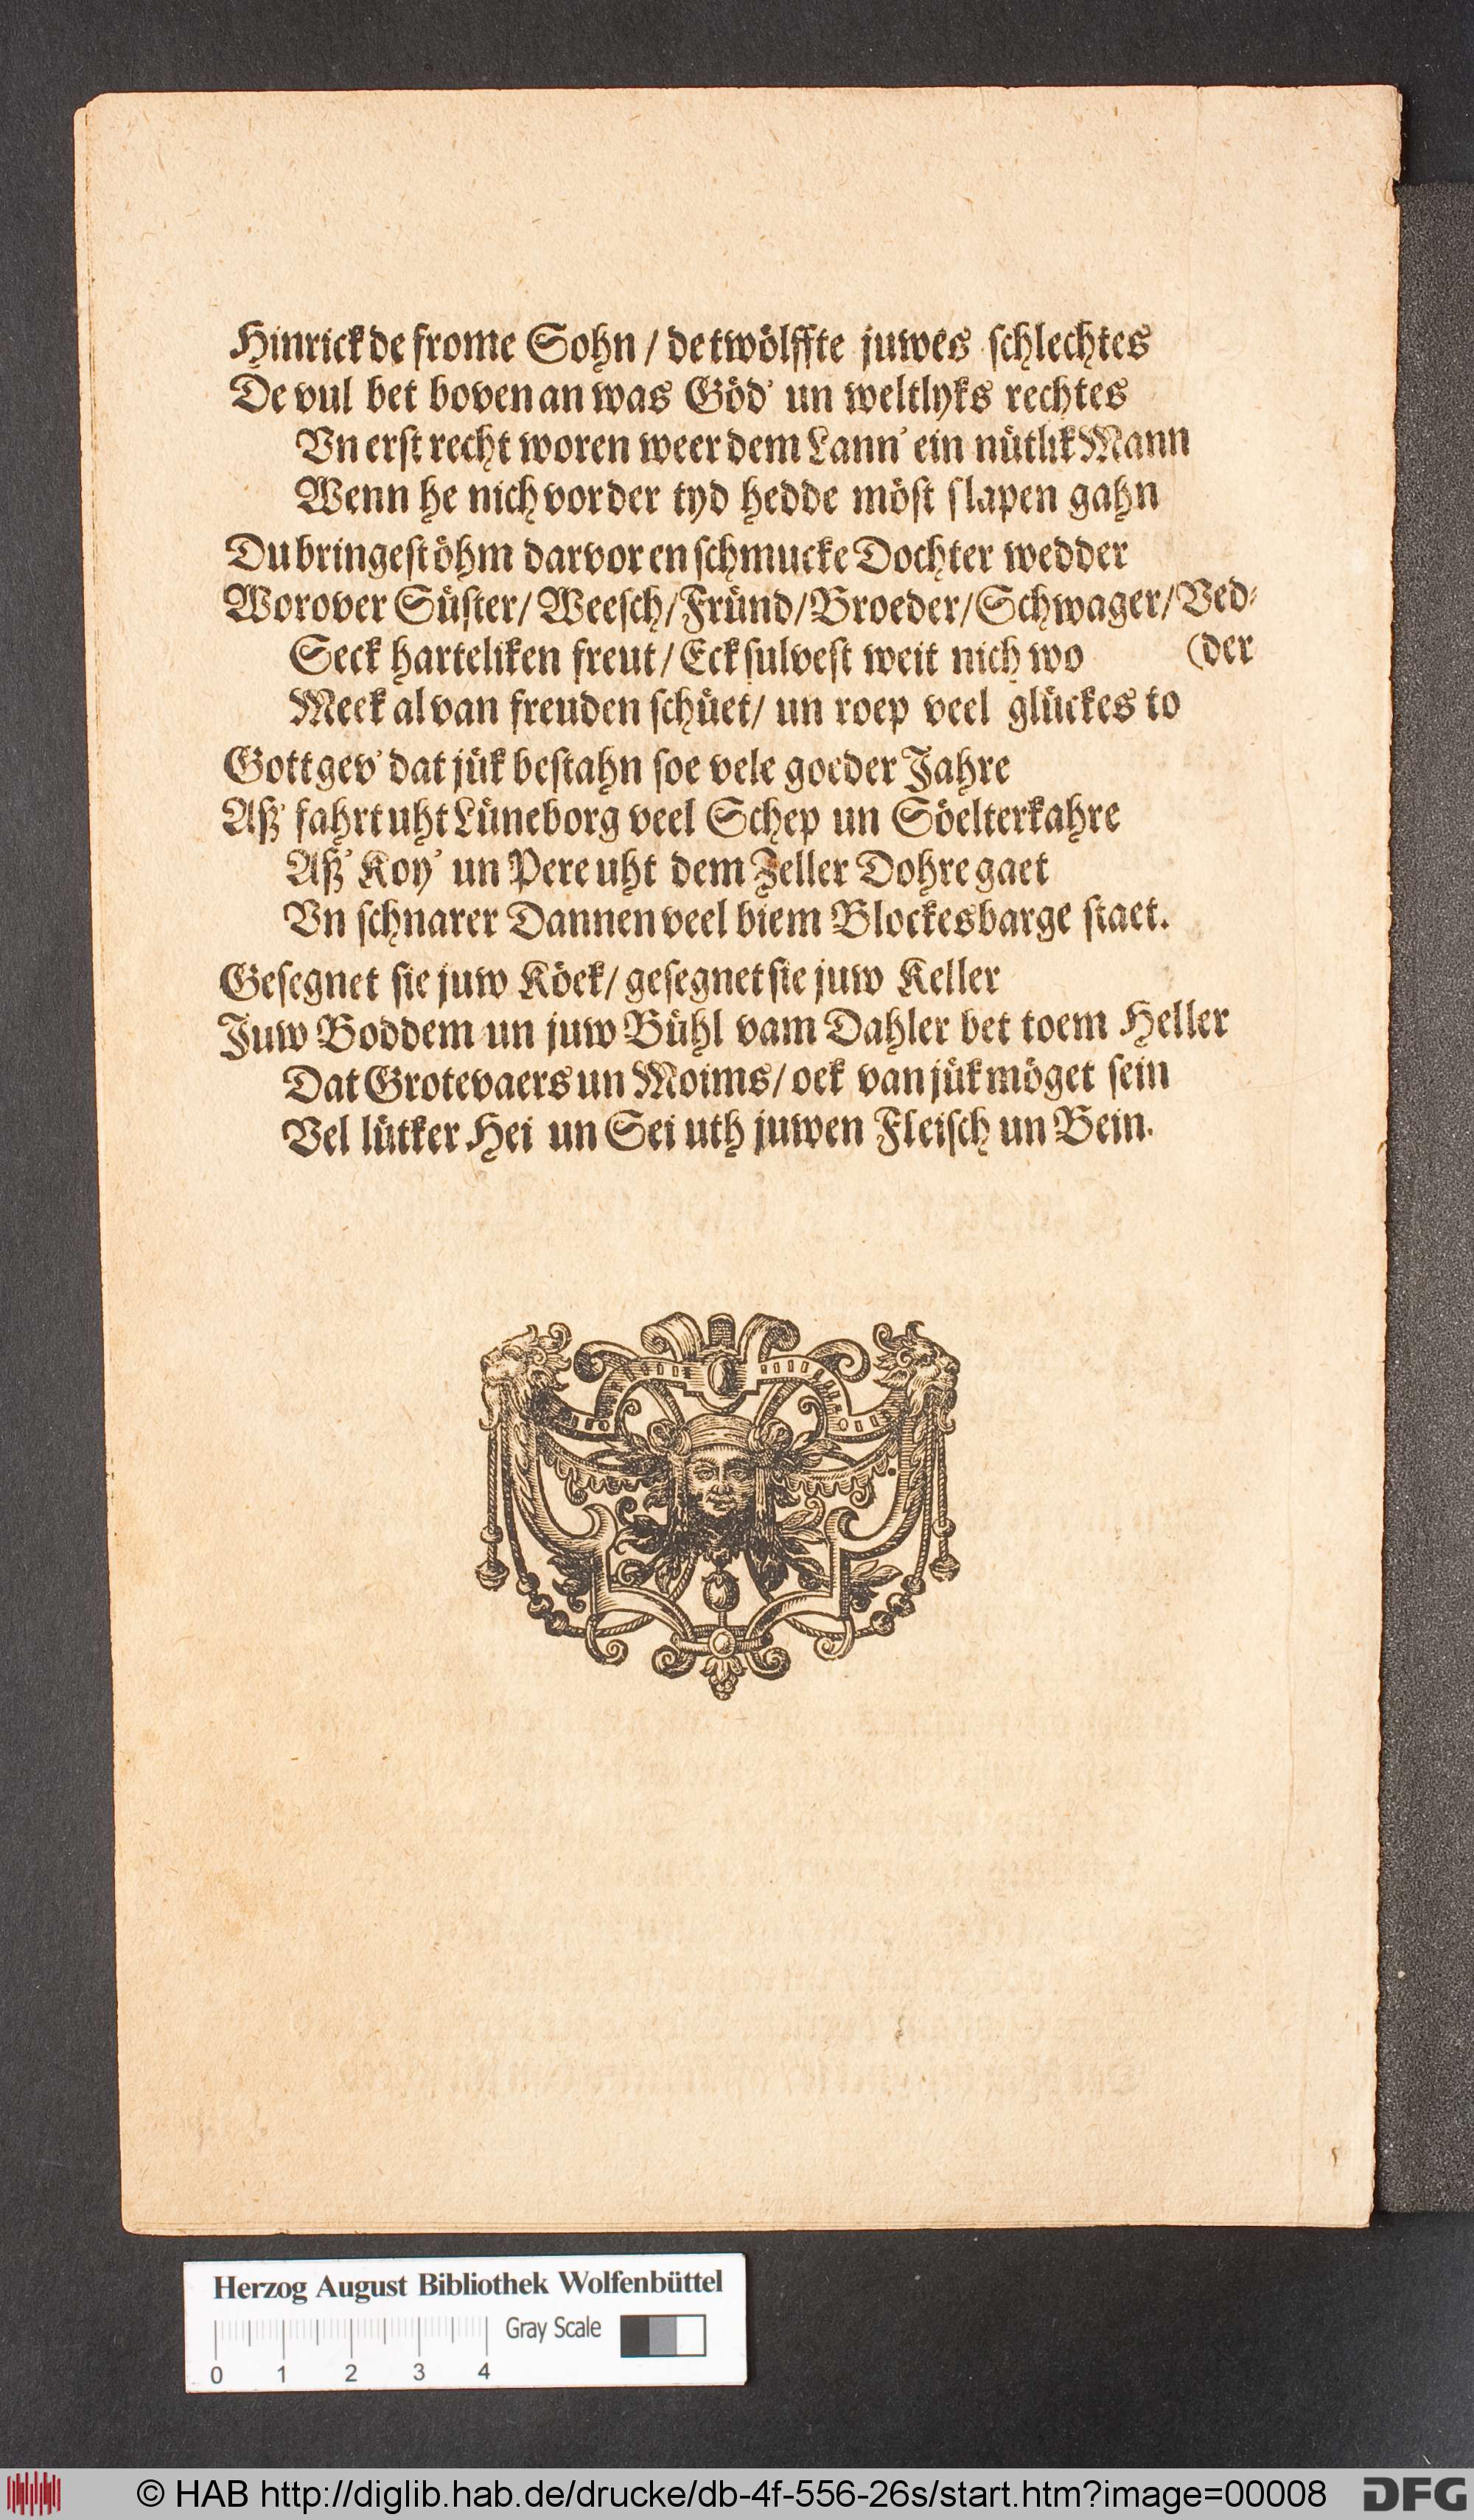 Hinrick de frome Sohn / de twölffte juwes schlechtes
De vul bet boven an was Göd' un weltlyks rechtes
Vn erst recht woren weer dem Lann' ein nütlik Mann
Wenn he nich vor der tyd hedde möst slapen gahn
Du bringest öhm darvor en schmucke Dochter wedder
Worover Süster / Weesch / Fründ / Broeder / Schwager / Ved-
Seck harteliken freut / Eck sulvest weit nich wo (der
Meek al van freuden schüet / un roep veel glückes to
Gott gev' dat jük bestahn soe vele goeder Jahre
Aß' fahrt uht Lüneborg veel Schep un Söelterkahre
Aß' Koy' un Pere uht dem Zeller Dohre gaet
Vn schnarer Dannen veel biem Blockesbarge staet.
Gesegnet sie juw Köek / gesegnet sie juw Keller
Juw Boddem un juw Bühl vam Dahler bet toem Heller
Dat Grotevaers un Moims / oek van jük möget sein
Vel lütker Hei un Sei uth juwen Fleisch un Bein.
Herzog August Bibliothek Wolfenbüttel
Gray Scale
0 1 2 3 4
© HAB http://diglib.hab.de/drucke/db-4f-556-26s/start.htm?image=00008 DFG